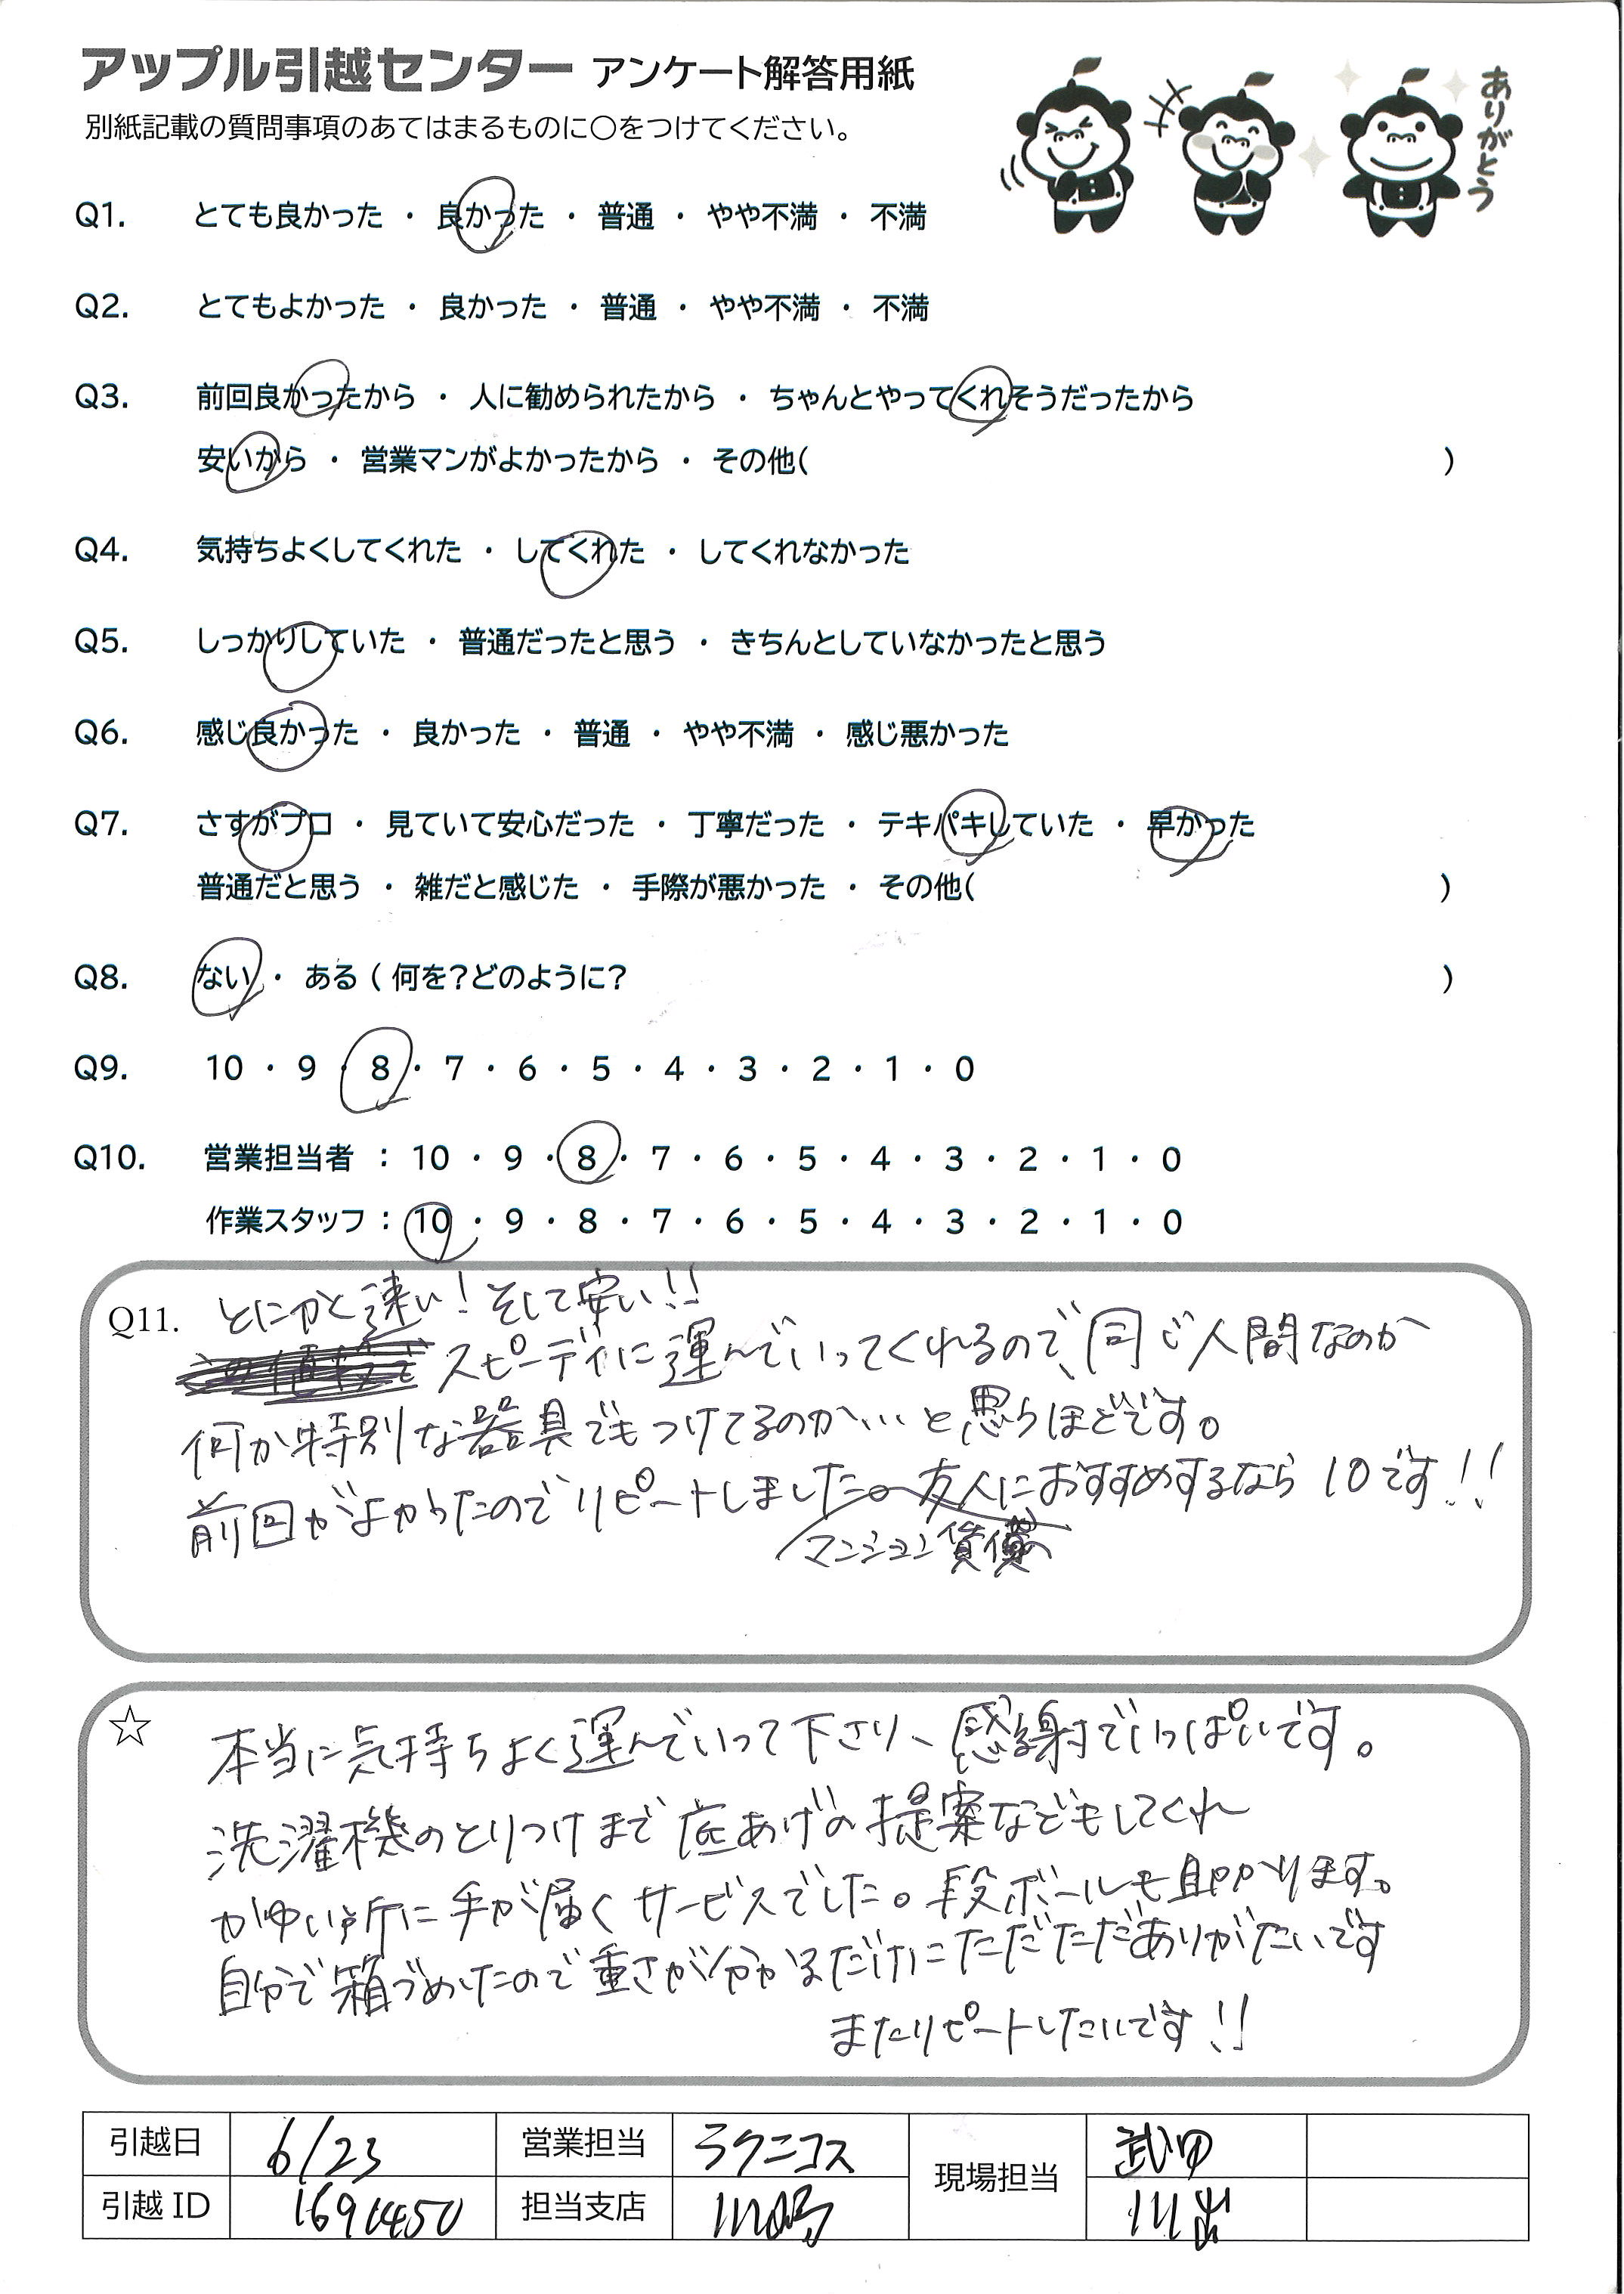 アップル引越センター アンケート解答用紙
別紙記載の質問事項のあてはまるものに〇をつけてください。
ありがとう
Q1. とても良かった ・ 良かった ・ 普通 ・ やや不満 ・ 不満
Q2. とてもよかった ・ 良かった ・ 普通 ・ やや不満 ・ 不満
Q3. 前回良かったから ・ 人に勧められたから ・ ちゃんとやってくれそうだったから
安いから ・ 営業マンがよかったから ・ その他( )
Q4. 気持ちよくしてくれた ・ してくれた ・ してくれなかった
Q5. しっかりしていた ・ 普通だったと思う ・ きちんとしていなかったと思う
Q6. 感じ良かった ・ 良かった ・ 普通 ・ やや不満 ・ 感じ悪かった
Q7. さすがプロ ・ 見ていて安心だった ・ 丁寧だった ・ テキパキしていた ・ 早かった
普通だと思う ・ 雑だと感じた ・ 手際が悪かった ・ その他( )
Q8. ない ・ ある ( 何を?どのように? )
Q9. 10 ・ 9 ・ 8 ・ 7 ・ 6 ・ 5 ・ 4 ・ 3 ・ 2 ・ 1 ・ 0
Q10. 営業担当者 : 10 ・ 9 ・ 8 ・ 7 ・ 6 ・ 5 ・ 4 ・ 3 ・ 2 ・ 1 ・ 0
作業スタッフ : 10 ・ 9 ・ 8 ・ 7 ・ 6 ・ 5 ・ 4 ・ 3 ・ 2 ・ 1 ・ 0
Q11. とにかく速い! そして安い!!
スピーディに運んでいってくれるので、同じ人間なのか
何か特別な器具でもつけてるのか…と思うほどです。
前回がよかったのでリピートしました。友人におすすめするなら10です!!
マンション賃貸
☆ 本当に気持ちよく運んでいって下さり、感謝でいっぱいです。
洗濯機のとりつけまで底あげの提案などもしてくれ
かゆい所に手が届くサービスでした。段ボールも助かります。
自分で箱づめしたので重さが分かるだけにただただありがたいです
またリピートしたいです!!
引越日 6/23 営業担当 ラクニコス 現場担当 武田
引越 ID 担当支店 川崎